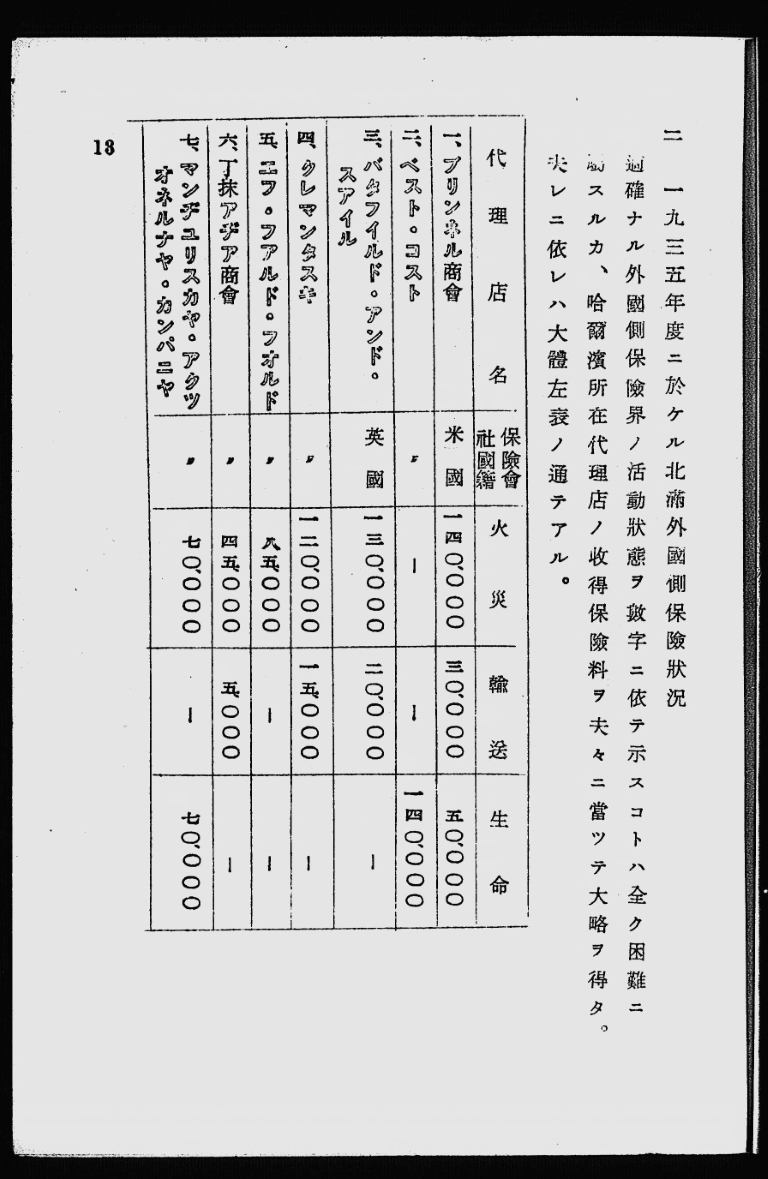 二 一九三五年度ニ於ケル北滿外國側保險狀況
適確ナル外國側保險界ノ活動狀態ヲ數字ニ依テ示スコトハ全ク困難ニ
屬スルカ、哈爾濱所在代理店ノ收得保險料ヲ夫々ニ當ツテ大略ヲ得タ。
夫レニ依レハ大體左表ノ通テアル。
代理店名 保險會社國籍 火災 輸送 生命
一、ブリンネル商會 米國 一四〇、〇〇〇 三〇、〇〇〇 五〇、〇〇〇
二、ベスト・コスト 〃 ー ー 一四〇、〇〇〇
三、バタフイルド・アンド・
スアイル 英國 一三〇、〇〇〇 二〇、〇〇〇 ー
四、クレマンタスキ 〃 一二〇、〇〇〇 一五、〇〇〇 ー
五、エフ・フアルド・フオルド 〃 八五、〇〇〇 ー ー
六、丁抹アヂア商會 〃 四五、〇〇〇 五、〇〇〇 ー
七、マンヂユリスカヤ・アクツ
オネルナヤ・カンパニヤ 〃 七〇、〇〇〇 ー 七〇、〇〇〇
13